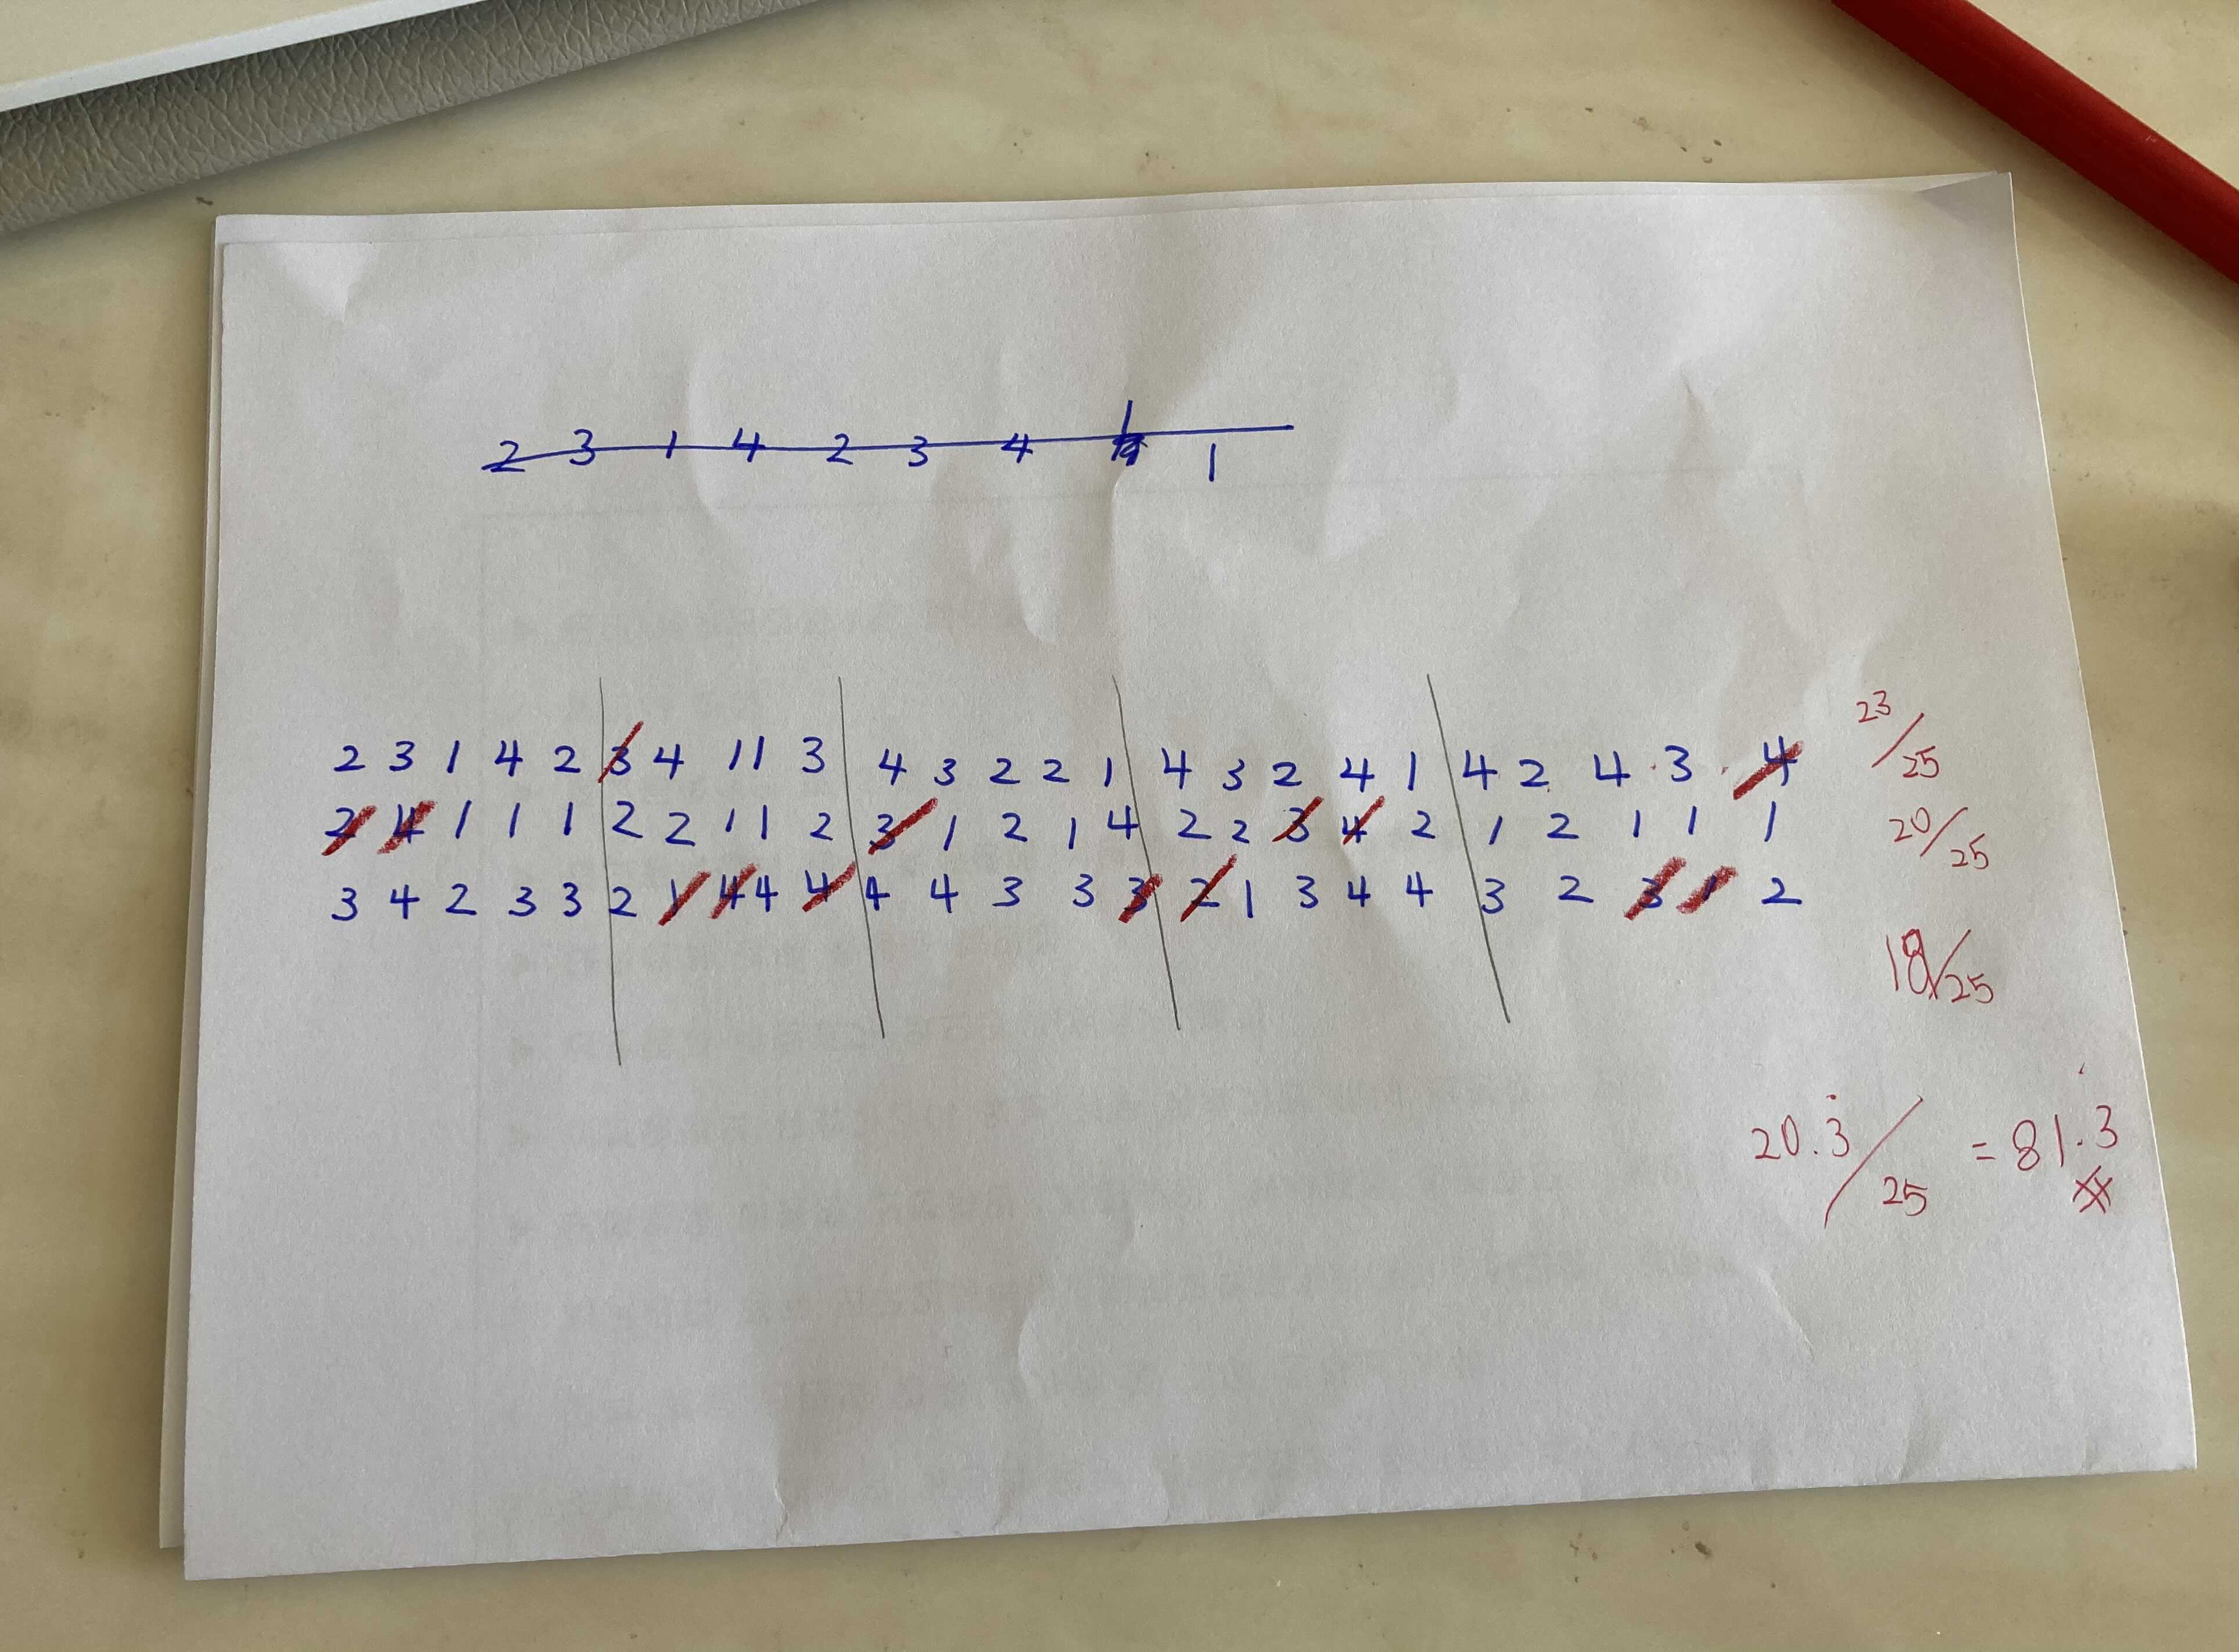 2 3 1 4 2 3 4 1 1
2 3 1 4 2 3 4 1 1 3 4 3 2 2 1 4 3 2 4 1 4 2 4 3 4 23/25
2 4 1 1 1 2 2 1 1 2 3 1 2 1 4 2 2 3 4 2 1 2 1 1 1 20/25
3 4 2 3 3 2 1 4 4 4 4 4 3 3 3 2 1 3 4 4 3 2 3 1 2
18/25
20.3̇/25 = 81.3